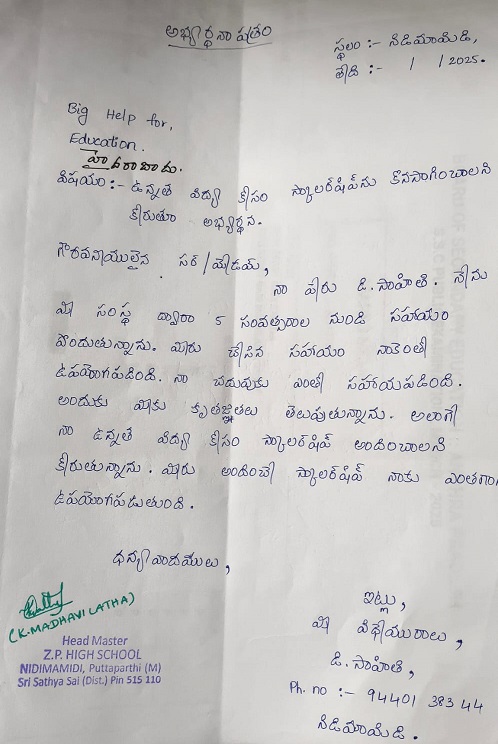 అభ్యర్థనా పత్రం
స్థలం :- నిడిమామిడి,
తేది :- / / 2025.
Big Help for,
Education.
హైదరాబాదు.
విషయం :- ఉన్నత విద్య కోసం స్కాలర్‌షిప్‌ను కొనసాగించాలని
కోరుతూ అభ్యర్థన.
గౌరవనీయులైన సర్ / మేడమ్,
నా పేరు డి. సాహితి. నేను
మీ సంస్థ ద్వారా 5 సంవత్సరాల నుండి సహాయం
పొందుతున్నాను. మీరు చేసిన సహాయం నాకెంతో
ఉపయోగపడింది. నా చదువుకు ఎంతో సహాయపడింది.
అందుకు మీకు కృతజ్ఞతలు తెలుపుతున్నాను. అలాగే
నా ఉన్నత విద్య కోసం స్కాలర్‌షిప్ అందించాలని
కోరుతున్నాను. మీరు అందించే స్కాలర్‌షిప్ నాకు ఎంతగానో
ఉపయోగపడుతుంది.
ధన్యవాదములు,
ఇట్లు,
మీ విధేయురాలు,
డి. సాహితి,
Ph. no :- 94401 383 44
నిడిమామిడి.
(K. MADHAVI LATHA)
Head Master
Z.P. HIGH SCHOOL
NIDIMAMIDI, Puttaparthi (M)
Sri Sathya Sai (Dist.) Pin 515 110